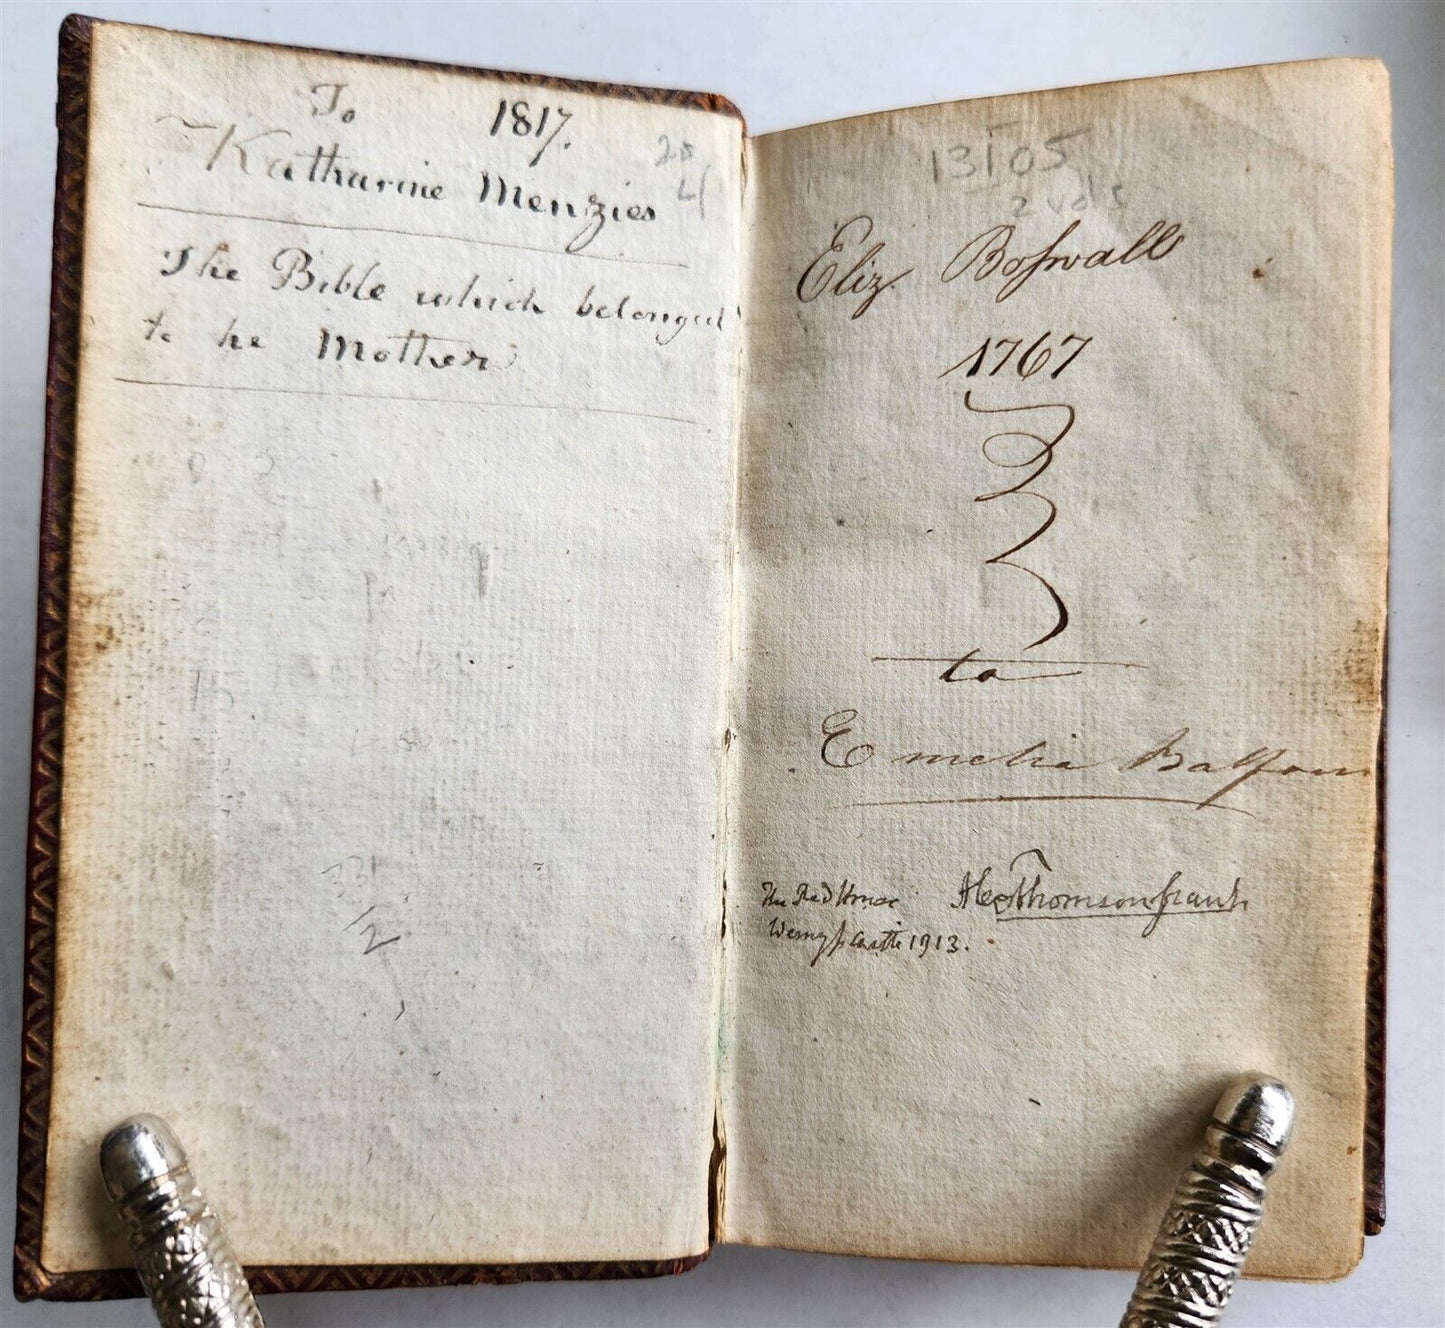 To 1817.
Katharine Menzies
The Bible which belonged
to he Mother
25
4
13105
2 vols
Eliz Boſwall
1767
to
Emelia Balfour
The Red House
Wemyſs Castle 1913.